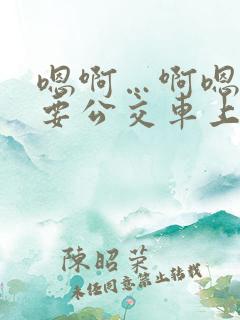 嗯啊…啊嗯
要公交车上
陳昭荣
未经同意禁止转载